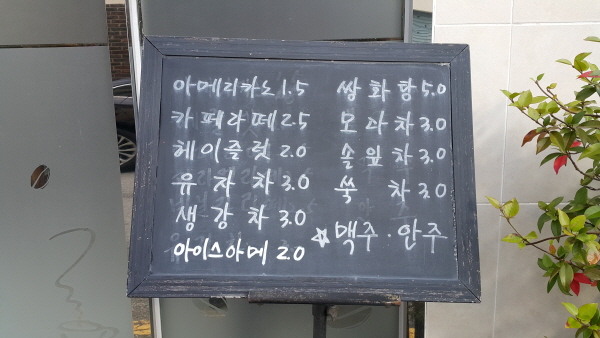 아메리카노 1.5
카페라떼 2.5
헤이즐럿 2.0
유자차 3.0
생강차 3.0
아이스아메 2.0
쌍화탕 5.0
모과차 3.0
솔잎차 3.0
쑥차 3.0
☆맥주·안주